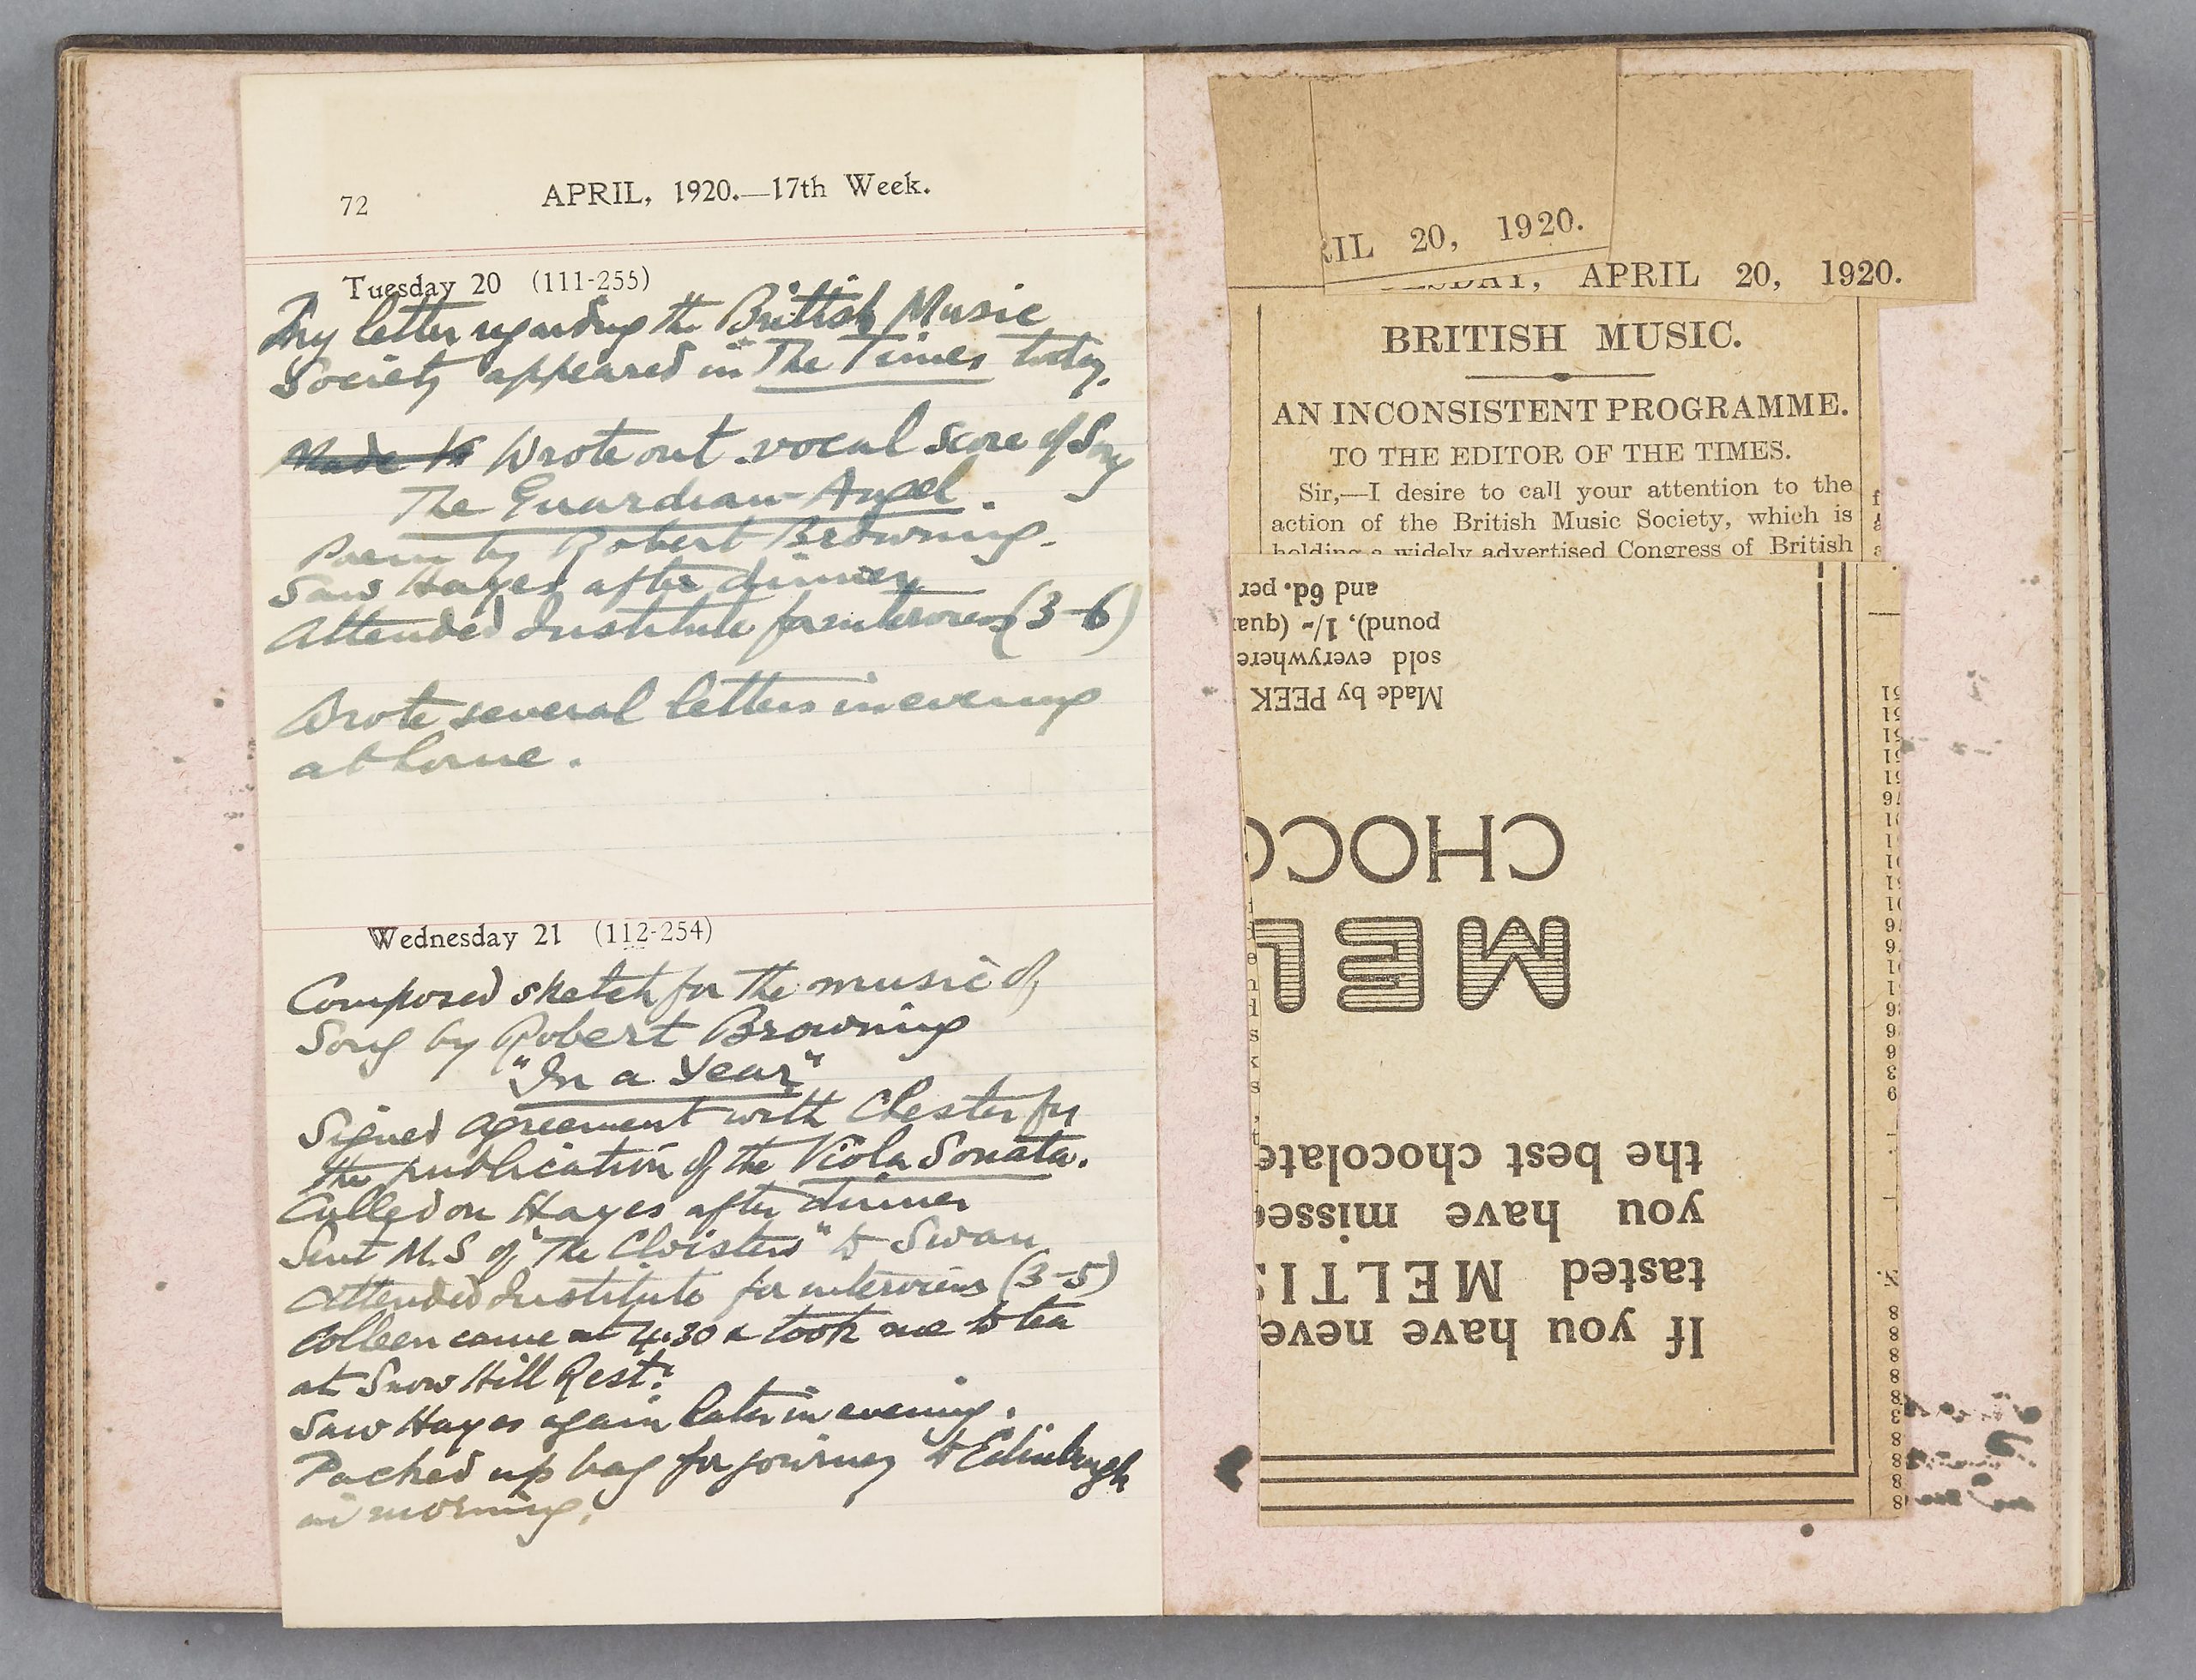 72
APRIL, 1920.—17th Week.
Tuesday 20 (111-255)
My letter regarding the British Music
Society appeared in The Times today.
Made Wrote out vocal score of Song
The Guardian-Angel.
Poem by Robert Browning.
Saw Hayes after dinner
Attended Institute for interviews (3-6)
Wrote several letters in evening
at home.
Wednesday 21 (112-254)
Composed sketch for the music of
Song by Robert Browning
"In a Year"
Signed agreement with Chester for
the publication of the Viola Sonata.
Called on Hayes after dinner
Sent M.S of "The Cloisters" to Swan
Attended Institute for interviews (3-5)
Colleen came at 4.30 & took me to tea
at Snow Hill Rest:
Saw Hayes again later in evening.
Packed up bag for journey to Edinburgh
in morning.
RIL 20, 1920.
APRIL 20, 1920.
BRITISH MUSIC.
AN INCONSISTENT PROGRAMME.
TO THE EDITOR OF THE TIMES.
Sir,—I desire to call your attention to the
action of the British Music Society, which is
holding a widely advertised Congress of British
If you have neve
tasted MELTIS
you have missed
the best chocolate
MEL
CHOCO
Made by PEEK
sold everywhere
pound), 1/- (quar
and 6d. per